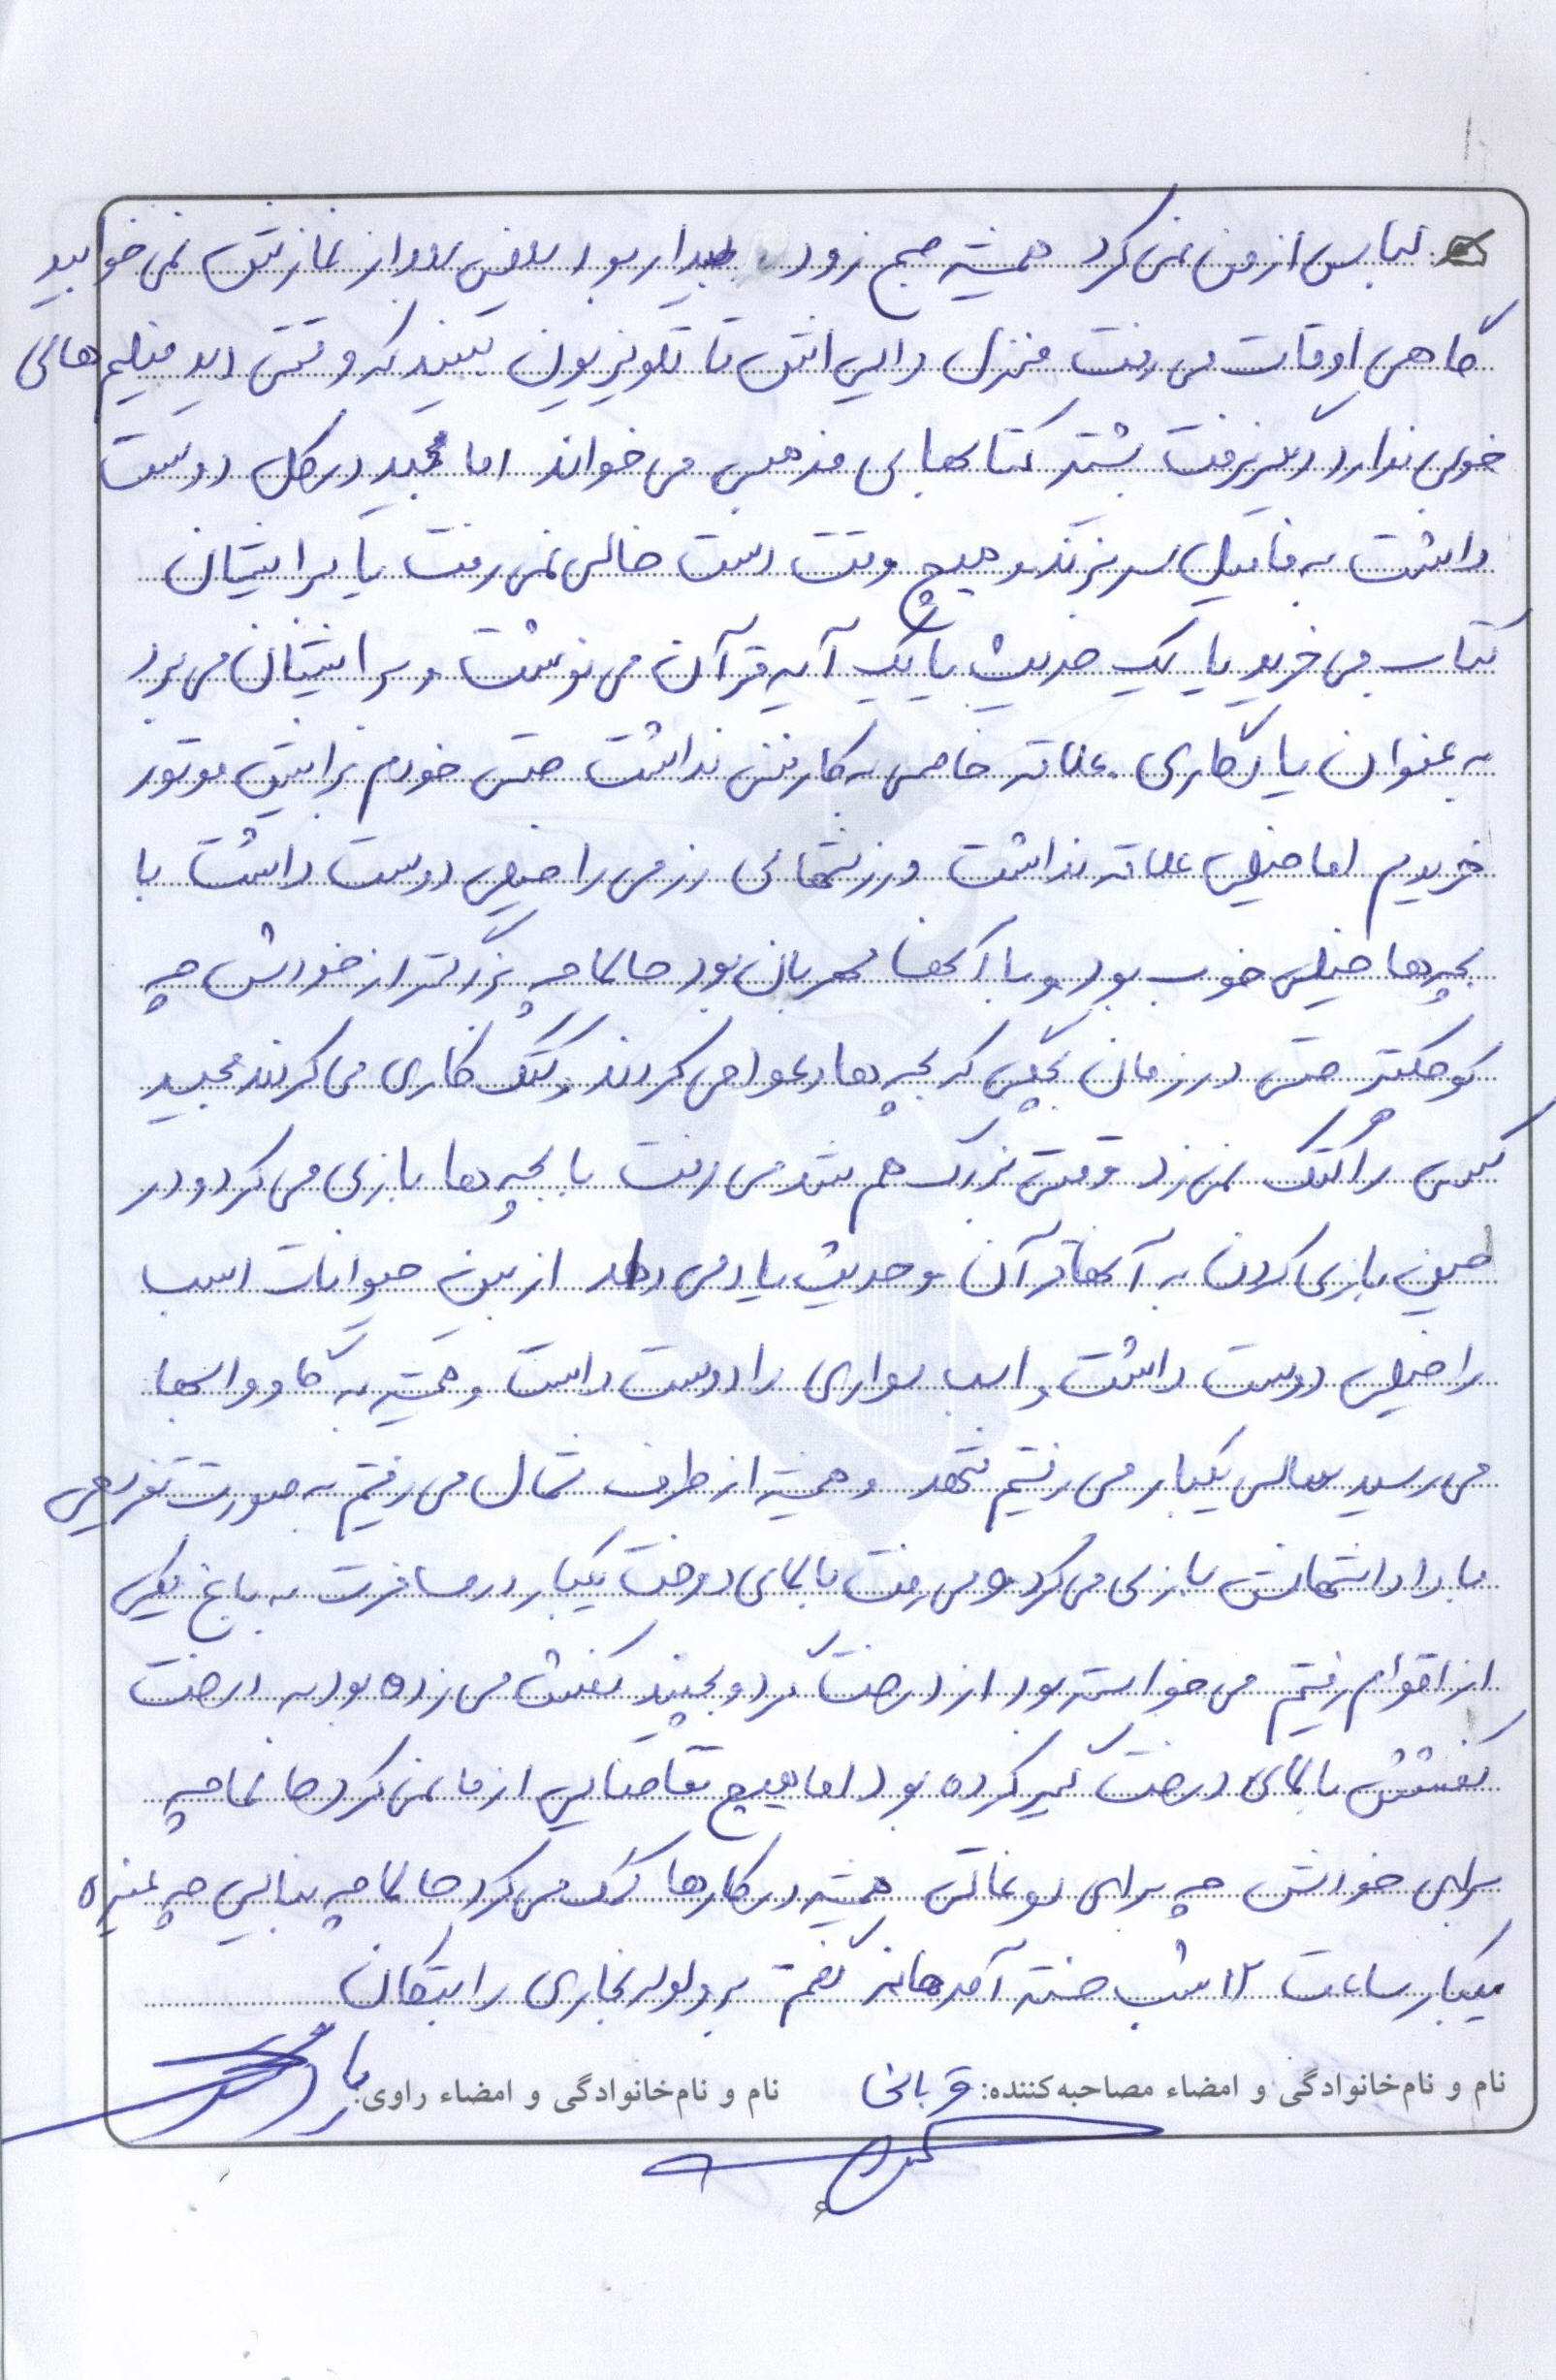 لباس از من نمی کرد همیشه صبح زود بیدار بود یعنی بعد از نمازش نمی خوابید
گاهی اوقات می رفت منزل دایی اش تا تلویزیون ببیند که وقتی دید فیلم هائی
خوبی ندارد دیگر نرفت بیشتر کتابهایی مذهبی می خواند اما مجید در کل دوست
داشت به فامیل سر بزند و هیچ وقت دست خالی نمی رفت یا برایشان
کتاب می خرید یا یک حدیث یا یک آیه قرآن می نوشت و برایشان می برد
به عنوان یادگاری. علاقه خاصی به کار فنی نداشت حتی خودم برایش موتور
خریدم اما خیلی علاقه نداشت ورزشهائی رزمی را خیلی دوست داشت با
بچه ها خیلی خوب بود و با آنها مهربان بود حالا چه بزرگتر از خودش چه
کوچکتر حتی در زمان بچگی که بچه ها دعوا می کردند و کتک کاری می کردند مجید
کسی را کتک نمی زد وقتی بزرگ هم شد می رفت با بچه ها بازی می کرد و در
حین بازی کردن به آنها قرآن و حدیث یاد می داد از بین حیوانات اسب
را خیلی دوست داشت و اسب سواری را دوست داست و همیشه به گاو و اسبها
می رسید سالی یکبار می رفتیم مشهد و همیشه از طرف شمال می رفتیم به صورت تفریحی
با داداشهایش بازی می کرد و می رفت بالای درخت یکبار در مسافرت به باغ یکی
از اقوام رفتیم می خواسته بود از درخت گردو بچیند کفش می زده بود به درخت
کفشش بالای درخت گیر کرده بود اما هیچ تقاضایی از ما نمی کرد حالا چه
برای خودش چه برای دوستانش همیشه در کارها کمک می کرد حالا چه بنایی چه غیره
یکبار ساعت ۱۲ شب خسته آمد خانه گفتم برو لوله بخاری را بتکان
نام و نام خانوادگی و امضاء مصاحبه کننده: قربانی نام و نام خانوادگی و امضاء راوی:
۶